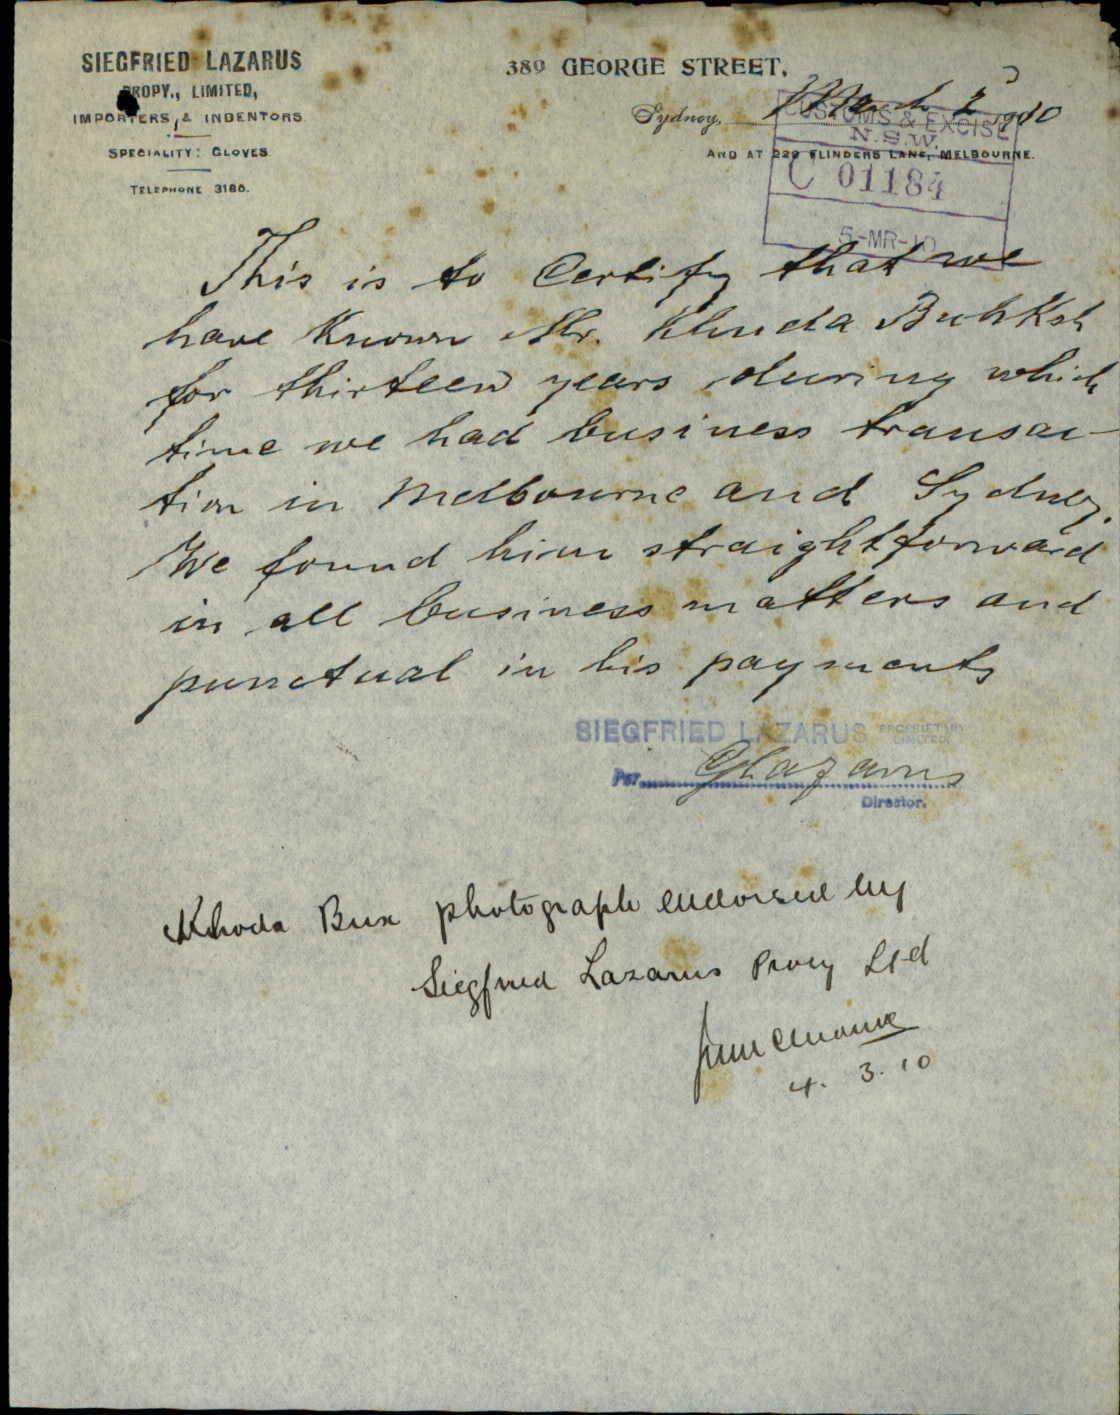 SIEGFRIED LAZARUS
PROPY., LIMITED,
IMPORTERS & INDENTORS
SPECIALITY: GLOVES
TELEPHONE 3180.
389 GEORGE STREET,
Sydney, March 2 1910
AND AT 229 FLINDERS LANE, MELBOURNE.
CUSTOMS & EXCISE
N.S.W.
C 01184
5-MR-10
This is to Certify that we
have Known Mr. Khuda Buhksh
for thirteen years during which
time we had business transac-
tion in Melbourne and Sydney.
We found him straightforward
in all business matters and
punctual in his payments
SIEGFRIED LAZARUS PROPRIETARY LIMITED
Per Glazarus
Director.
Khoda Bux photograph endorsed by
Siegfried Lazarus Provy Ltd
4. 3. 10